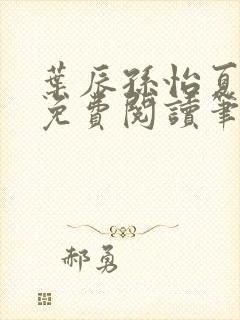 葉辰孫怡夏
免費閱讀筆
郝勇